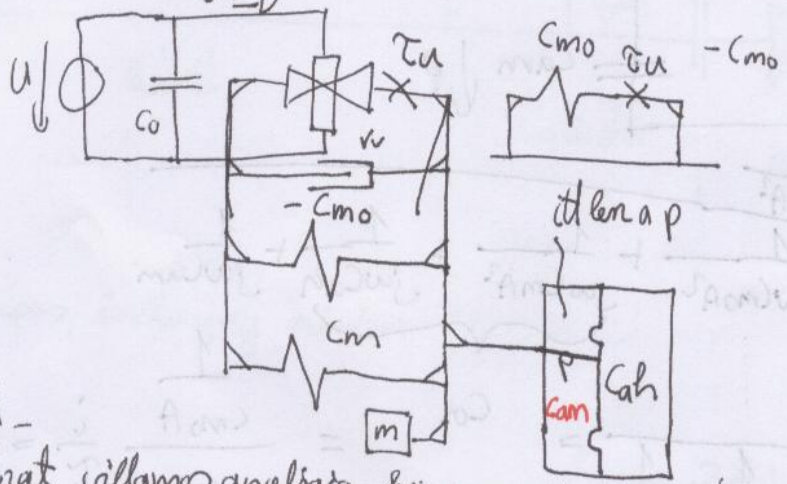 U
C₀
τu
Cmo
τu
-Cmo
rv
-Cmo
itt len a p
Cm
p
Cam
Cah
m